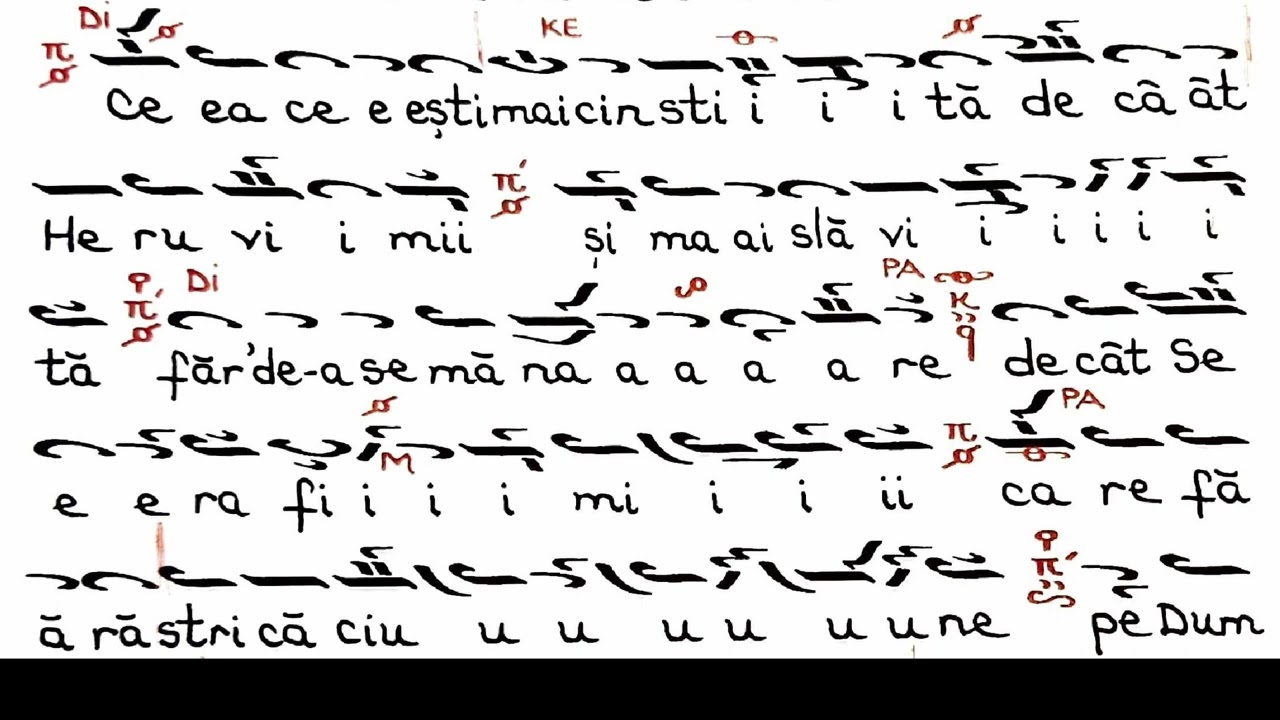 Di KE
π
Ce ea ce e ești mai cin sti i i i tă de câ ât
π
He ru vi i mii și ma ai slă vi i i i i i
π Di PA
tă făr'de-a se mă na a a a a re de cât Se
M π PA
e e ra fi i i i mi i i ii ca re fă
π
ă ră stri că ciu u u u u u u ne pe Dum